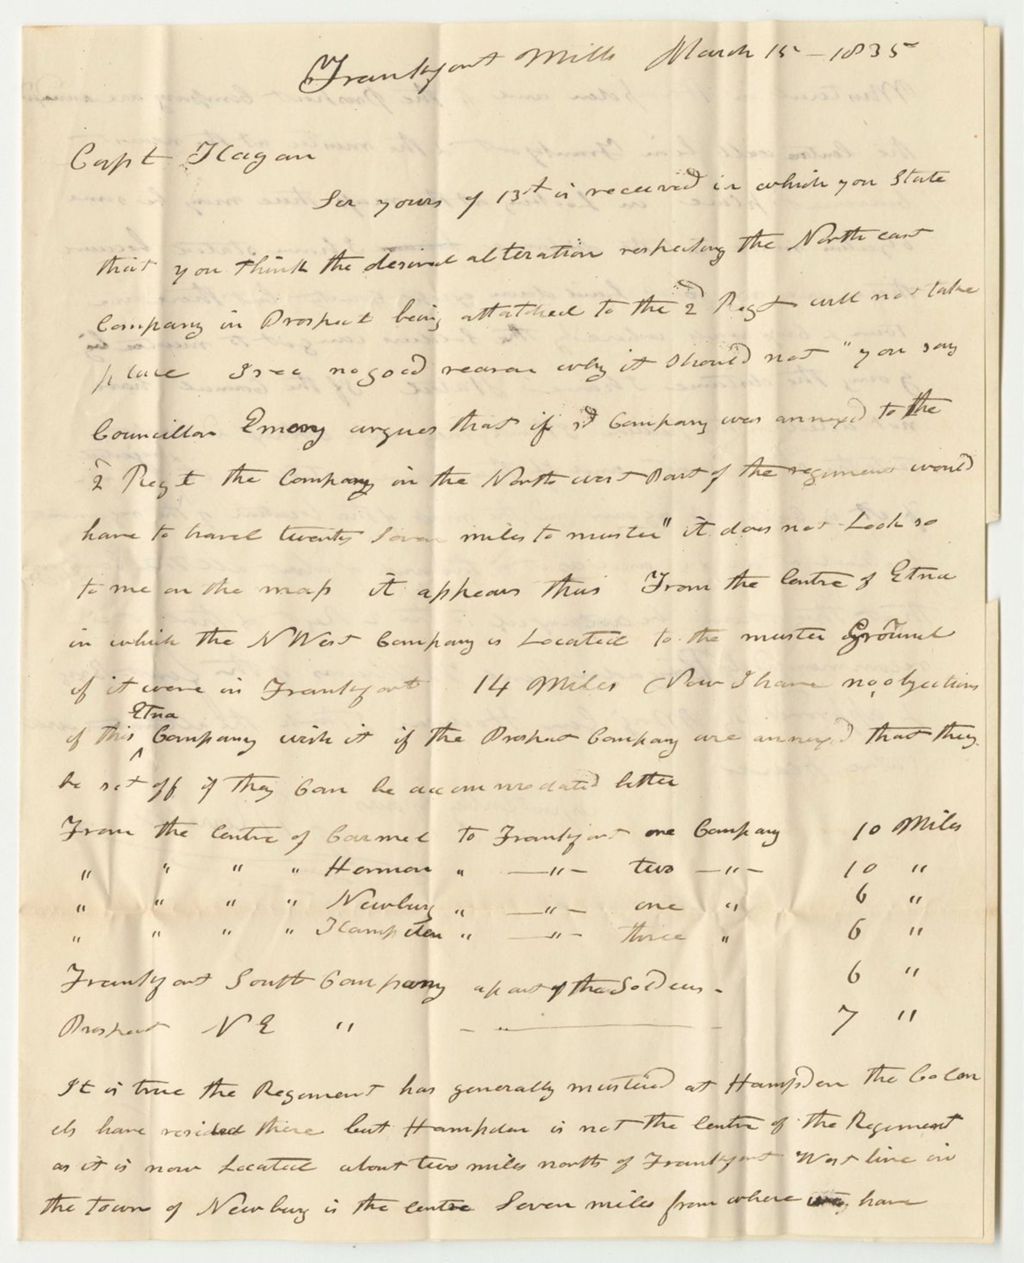 Frankfort Mills March 15 - 1835
Capt Hagan
Sir yours of 13t is received in which you State
that you think the desired alteration respecting the North east
Company in Prospect being attatched to the 2d Regt will not take
place I see no good reason why it should not " you say
Councillor Emery argues that if sd Company was annexed to the
2d Regt the Company in the North west Part of the regiment would
have to travel twenty Seven miles to muster" it does not Look so
to me on the map it appears thus From the Centre of Etna
in which the N West Company is Located to the muster Ground
if it were in Frankfort 14 Miles Now I have no objections
if this Etna Company wish it if the Prospect Company are annexed that they
be set off if they Can be accommodated better
From the Centre of Carmel to Frankfort one Company 10 Miles
" " " " Hermon " —"— two —"— 10 "
" " " " Newburg " —"— one " 6 "
" " " " Hampden " —"— three " 6 "
Frankfort South Company a part of the Soldiers - 6 "
Prospect N E " - " — 7 "
It is true the Regement has generally mustered at Hampden the Colon
els have resided there but Hampden is not the Centre of the Regement
as it is now Located about two miles north of Frankfort West line in
the town of Newburg is the centre Seven miles from where they have